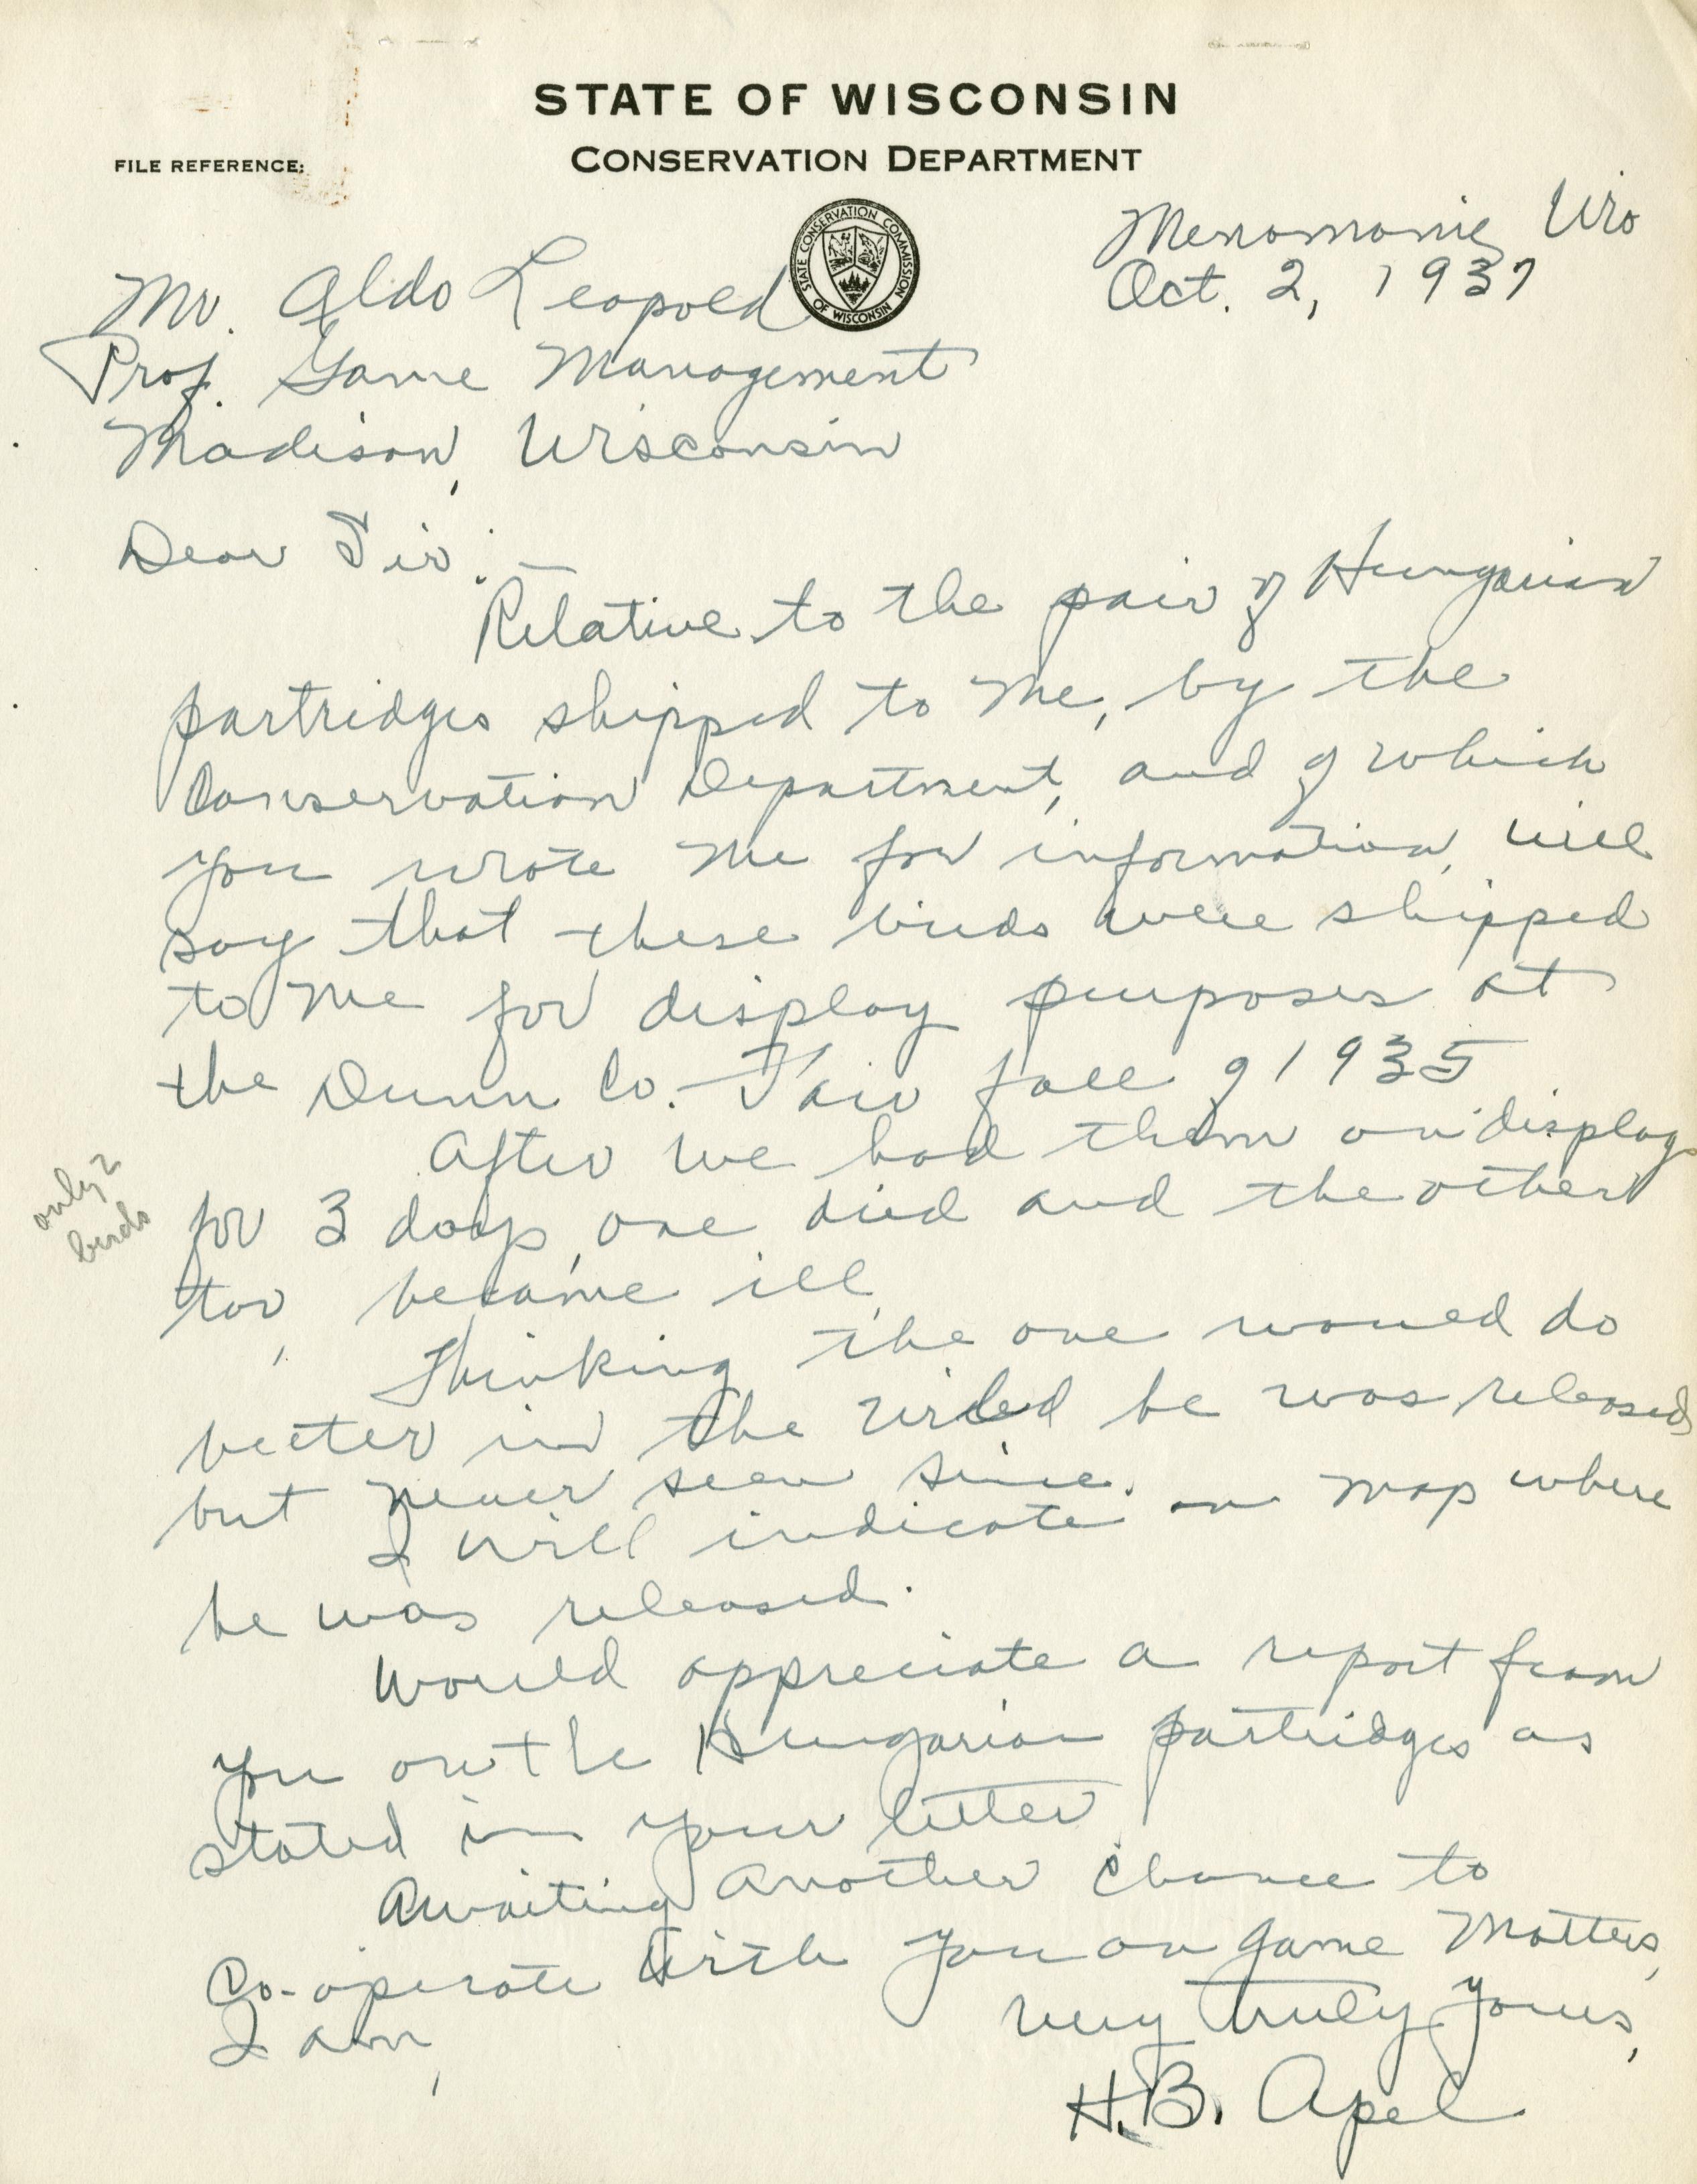 STATE OF WISCONSIN
CONSERVATION DEPARTMENT
FILE REFERENCE:
STATE CONSERVATION COMMISSION OF WISCONSIN
Menomonie, Wis
Oct. 2, 1937
Mr. Aldo Leopold
Prof. Game Management
Madison, Wisconsin
Dear Sir:—
Relative to the pair of Hungarian
partridges shipped to me, by the
Conservation Department, and of which
you wrote me for information, will
say that these birds were shipped
to me for display purposes at
the Dunn Co. Fair fall of 1935.
After we had them on display
for 3 days, one died and the other
too, became ill.
only 2
birds
Thinking the one would do
better in the wild he was released
but never seen since.
I will indicate on map where
he was released.
Would appreciate a report from
you on the Hungarian partridges as
stated in your letter
Awaiting another chance to
Co-operate with you on game matters,
I am,
Very truly yours,
H.B. Apel